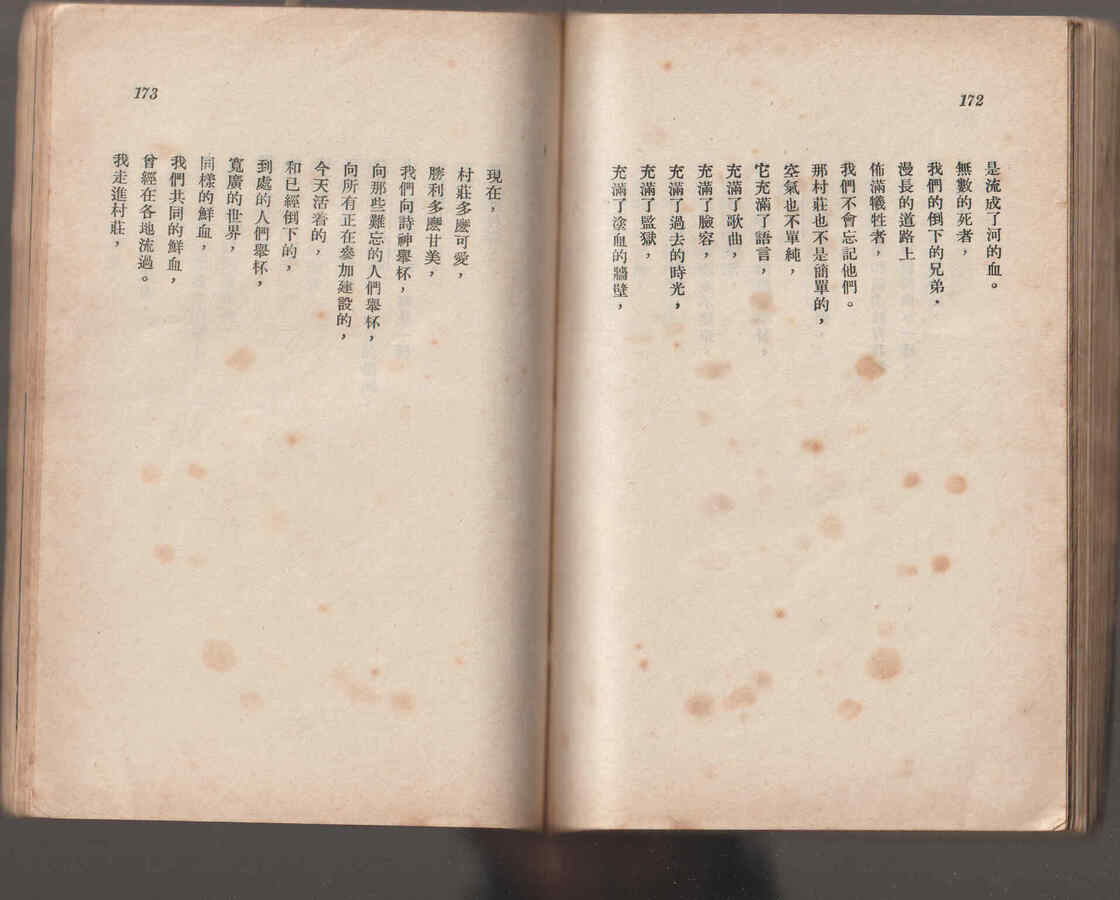 172
是流成了河的血。
無數的死者，
我們的倒下的兄弟，
漫長的道路上
佈滿犧牲者，
我們不會忘記他們。
那村莊也不是簡單的，
空氣也不單純，
它充滿了語言，
充滿了歌曲，
充滿了臉容，
充滿了過去的時光，
充滿了監獄，
充滿了塗血的牆壁，
173
現在，
村莊多麽可愛，
勝利多麽甘美，
我們向詩神舉杯，
向那些難忘的人們舉杯，
向所有正在參加建設的，
今天活着的，
和已經倒下的，
到處的人們舉杯，
寬廣的世界，
同樣的鮮血，
我們共同的鮮血，
曾經在各地流過。
我走進村莊，